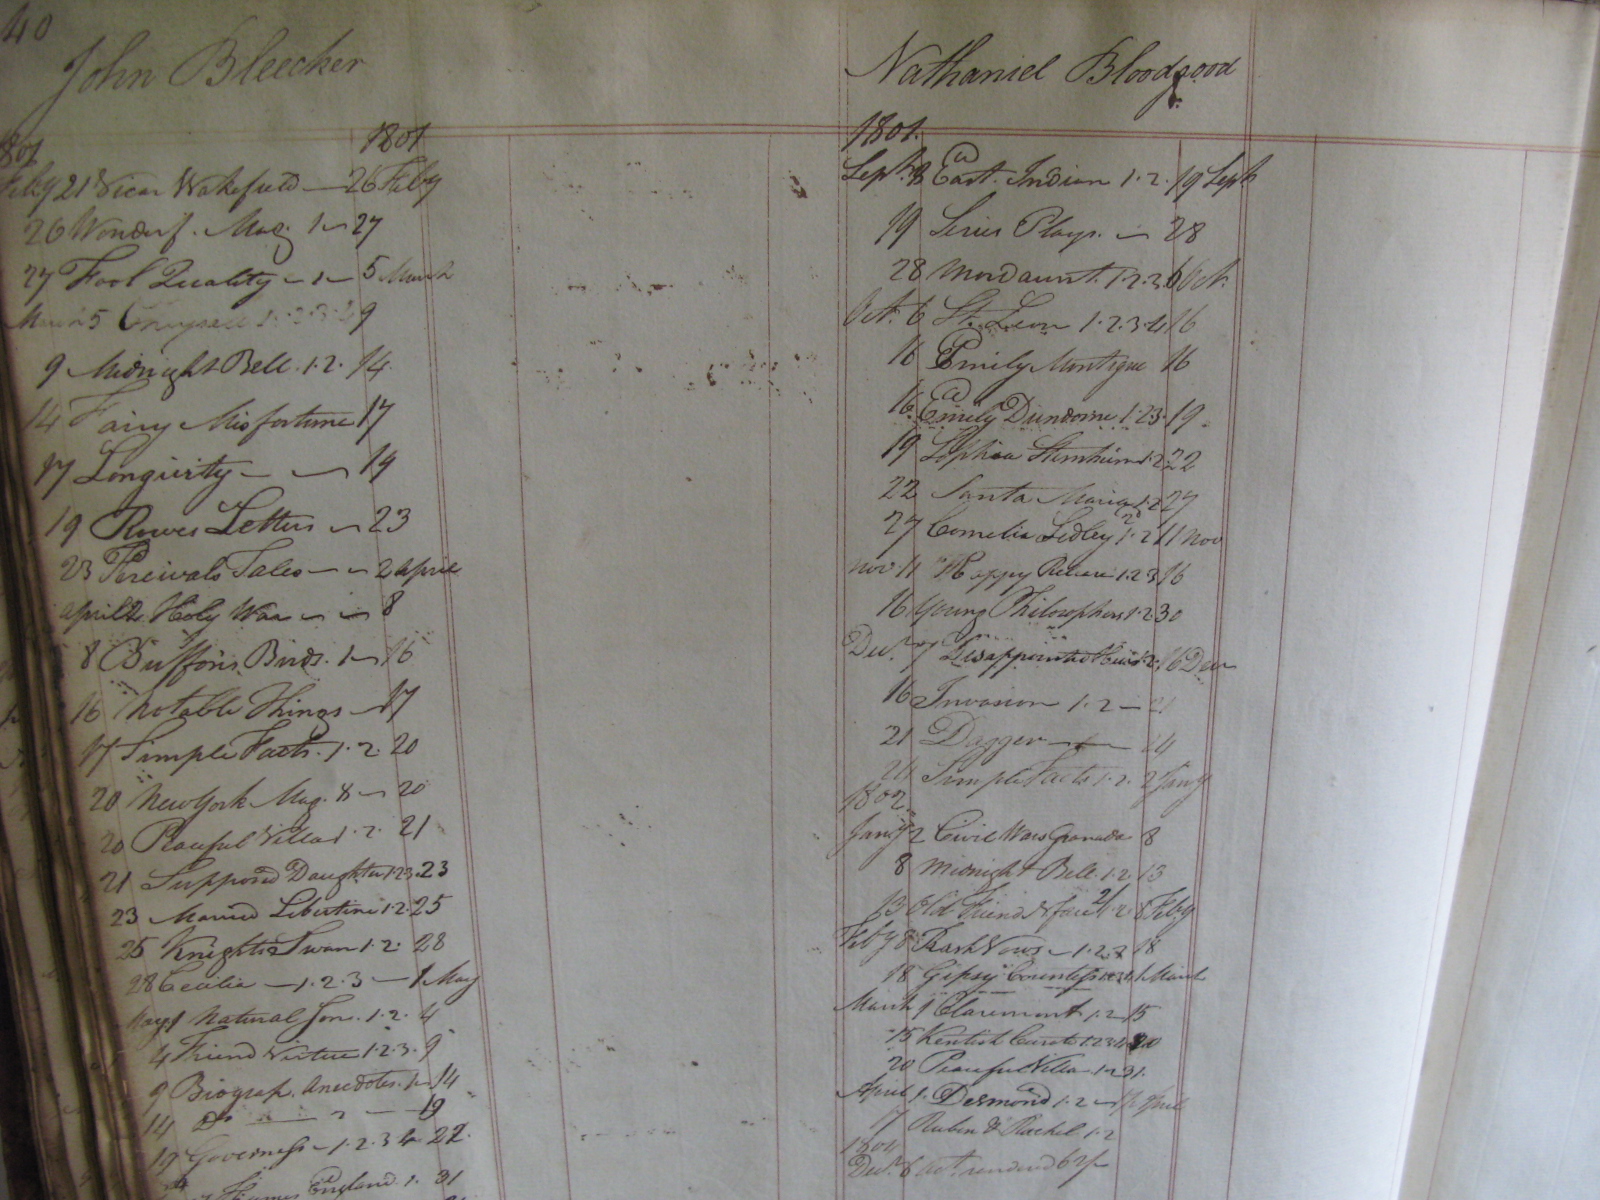 40
John Bleecker
1801 1801
Feby 21 Vicar Wakefield — 26 Feby
26 Wonderf. Mag. 1 — 27
27 Fool Quality — 1 — 5 March
March 5 1.2.3. 9
9 Midnight Bell. 1.2. 14
14 Fairy Misfortune 17
17 Longivity — — 19
19 Letters — 23
23 Percivals Tales — — 2 april
april 2 Holy War — — 8
8 Buffons Birds. 1 — 16
16 Notable Things — 17
17 Simple Facts. 1.2. 20
20 New York Mag. 8 — 20
20 Peaceful Villa 1.2. 21
21 Supposd Daughter 1.2.3. 23
23 Married Libertine 1.2. 25
25 Knights Swan 1.2. 28
28 Cecilia — 1.2.3 — 1 May
May 1 Natural Son. 1.2. 4
4 Friend Virtue 1.2.3. 9
9 Biograp. Anecdotes. 1 — 14
14 Do — 2 — 19
19 Governess — 1.2.3.4 22
England. 1. 31
Nathaniel Bloodgood
1801.
Sept. 8 East Indian 1.2. 19 Sept
19 Series Plays. — 28
28 Mordaunt. 1.2.3 6 Oct.
Oct. 6 St. Leon 1.2.3.4 16
16 Emily Montigue 16
16 Emily Dundorne 1.2.3. 19
19 Sophia Sternheim 1.2. 22
22 Santa Maria 1.2 27
27 Cornelia Sedley 1.2 11 Nov
Nov 11 Happy Release 1.2.3 16
16 Young Philosopher 1.2 30
Decr. 7 Disappointed Heir 1.2. 16 Decr
16 Invasion 1.2 — 21
21 Dagger — 24
24 Simple Facts 1.2. 2 Jany
1802
Jany 2 Civil Wars Granada 8
8 Midnight Bell. 1.2 13
13 Old Friend & face 2/ 1.2 8 Feby
Feby 8 Rash Vows — 1.2.3 18
18 Gipsy Countess 1.2.3.4 1 March
March 1 Claremont 1.2 15
15 Kentish Curate 1.2.3.4 20
20 Peaceful Villa 1.2 31.
April 1. Desmond 1.2 — April
7 Rubin & Rachel 1.2
1804
Decr. 6 Act. rendered